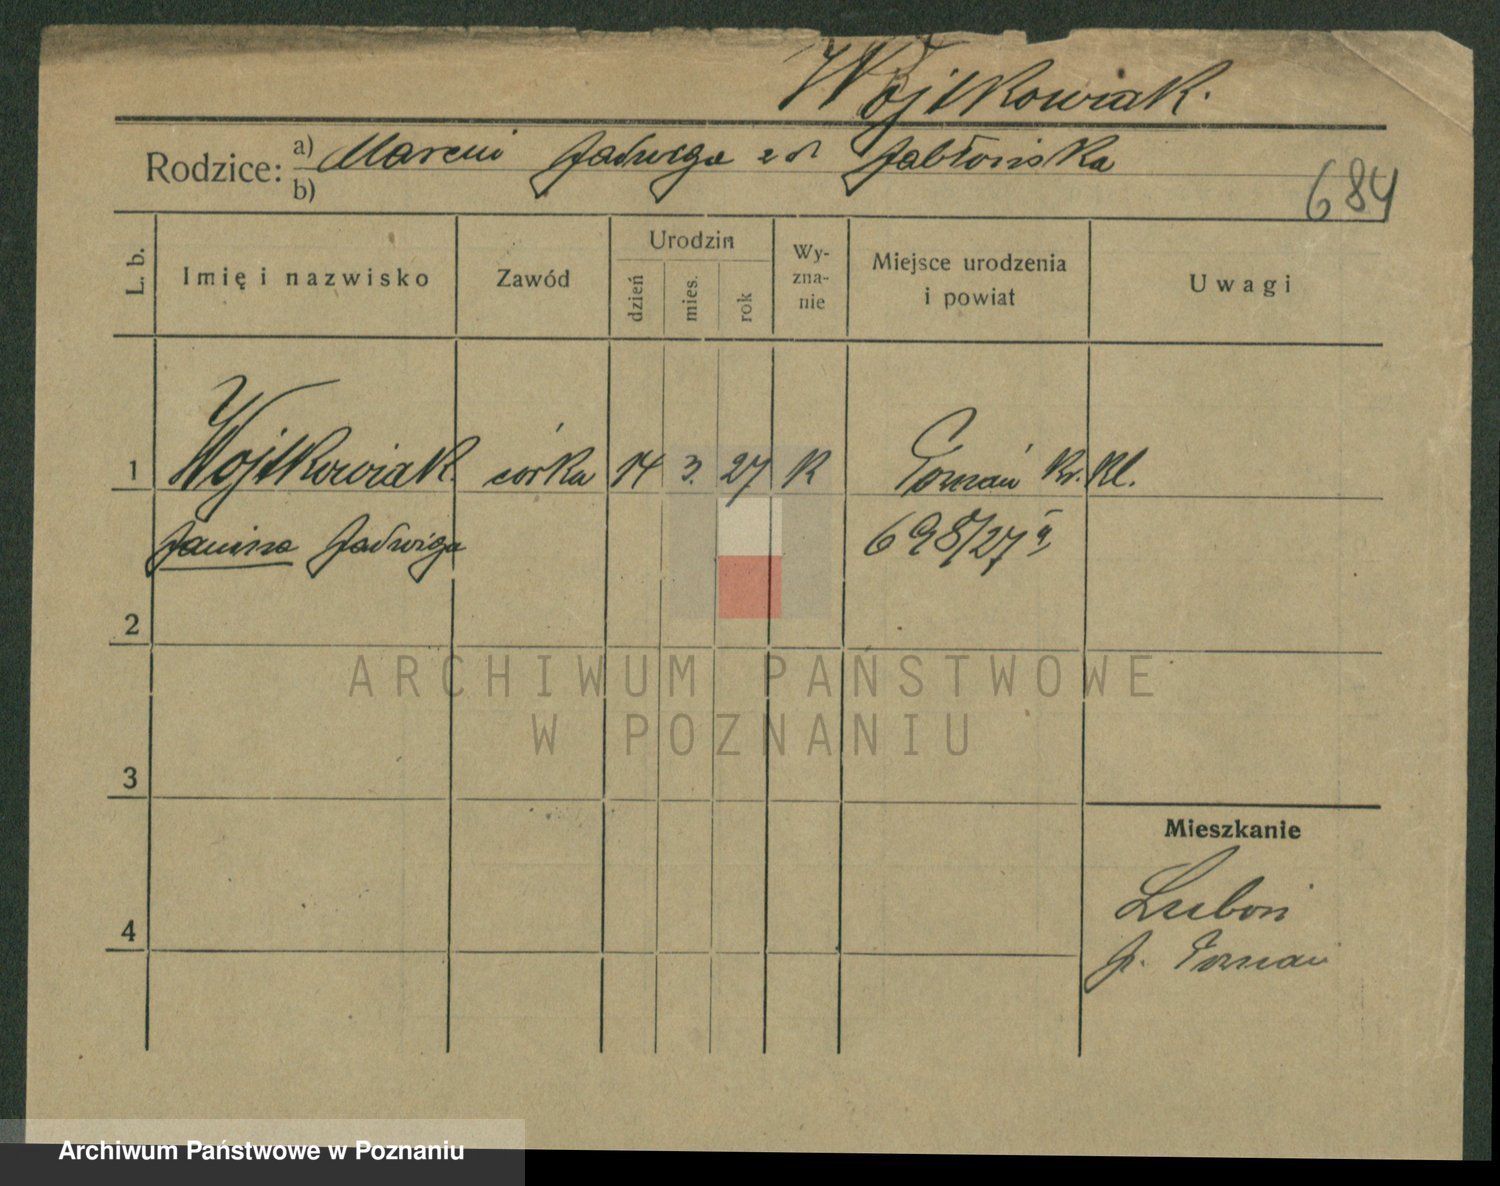 Wojtkowiak.
Rodzice: a) Marcin Jadwiga z d. Jabłońska
b)
684
L. b.
Imię i nazwisko
Zawód
Urodzin
dzień
mies.
rok
Wy-
zna-
nie
Miejsce urodzenia
i powiat
Uwagi
1 Wojtkowiak córka 14 3. 27 K Poznań
Janina Jadwiga 698/27
2
ARCHIWUM PAŃSTWOWE
W POZNANIU
3
Mieszkanie
Luboń
p. Poznań
4
Archiwum Państwowe w Poznaniu